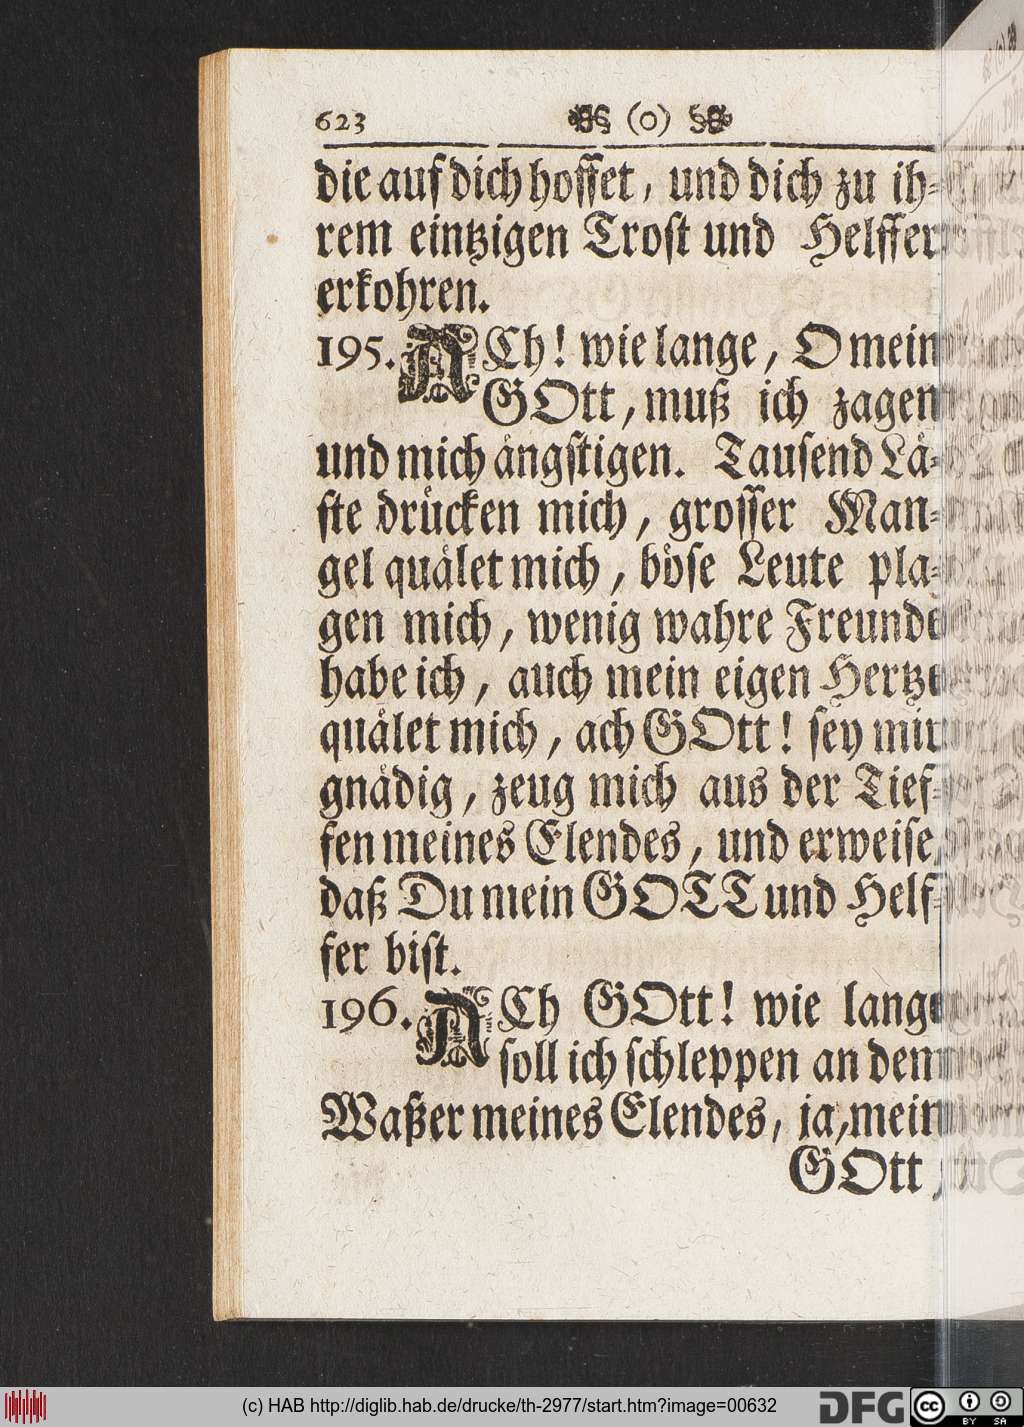 623 (o)
die auf dich hoffet, und dich zu ih-
rem eintzigen Trost und Helffer
erkohren.
195. ACh! wie lange, O mein
GOtt, muß ich zagen
und mich ängstigen. Tausend Lä-
ste drücken mich, grosser Man-
gel quälet mich, böse Leute pla-
gen mich, wenig wahre Freunde
habe ich, auch mein eigen Hertze
quälet mich, ach GOtt! sey mir
gnädig, zeug mich aus der Tief-
fen meines Elendes, und erweise,
daß Du mein GOTT und Helf-
fer bist.
196. ACh GOtt! wie lange
soll ich schleppen an dem
Waßer meines Elendes, ja, mein
GOtt,
(c) HAB http://diglib.hab.de/drucke/th-2977/start.htm?image=00632
DFG
cc BY SA